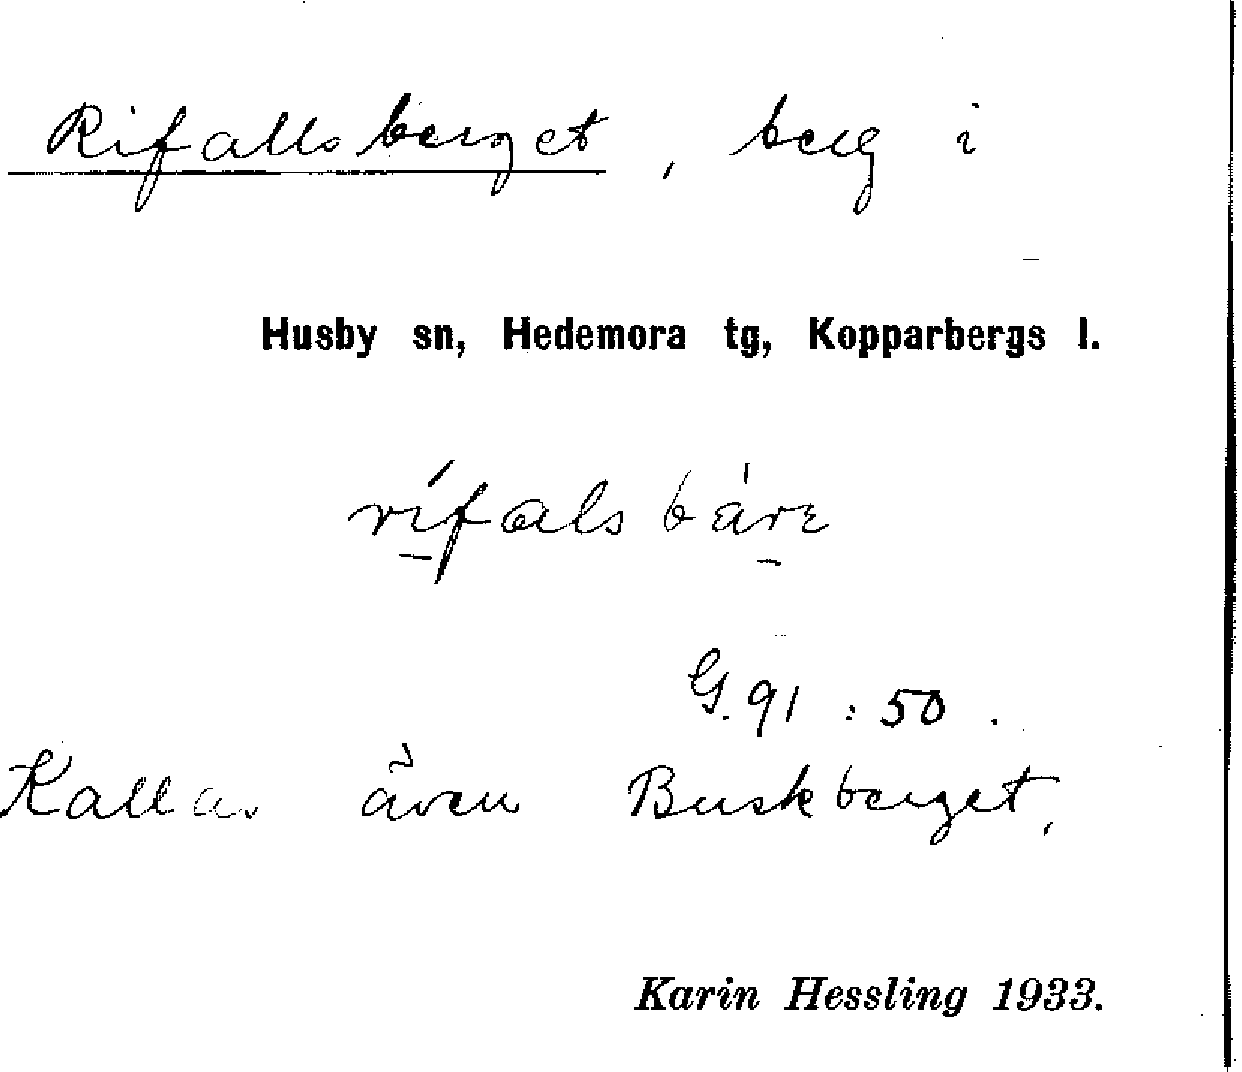 Rifallsberget, berg i
Husby sn, Hedemora tg, Kopparbergs l.
rífalsbärε
G. 91 : 50.
Kallas även Buskberget.
Karin Hessling 1933.